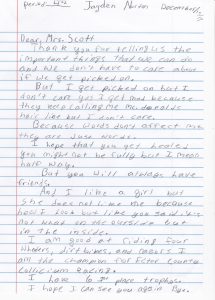 Jayden
Dear, Mrs. Scott
Thank you for telling us the
important things that we can do
and we don't have to care about
if we get picked on.
But I get picked on but I
don't care yes I get mad because
they keep calling me
hair line but I don't care.
Because words don't affect me
they are just words.
I hope that you get healed
you might not be fully but I mean
half way.
But you will always have
friends.
And I like a girl but
she does not like me because
how I look but like you said it's
not what on the outside but
in the inside.
I am good at riding four
wheelers, dirt bikes, and razors I
am the champion for Ector County
Coliseum racing.
I have 6 1st place trophys.
I hope I can see you again Bye.